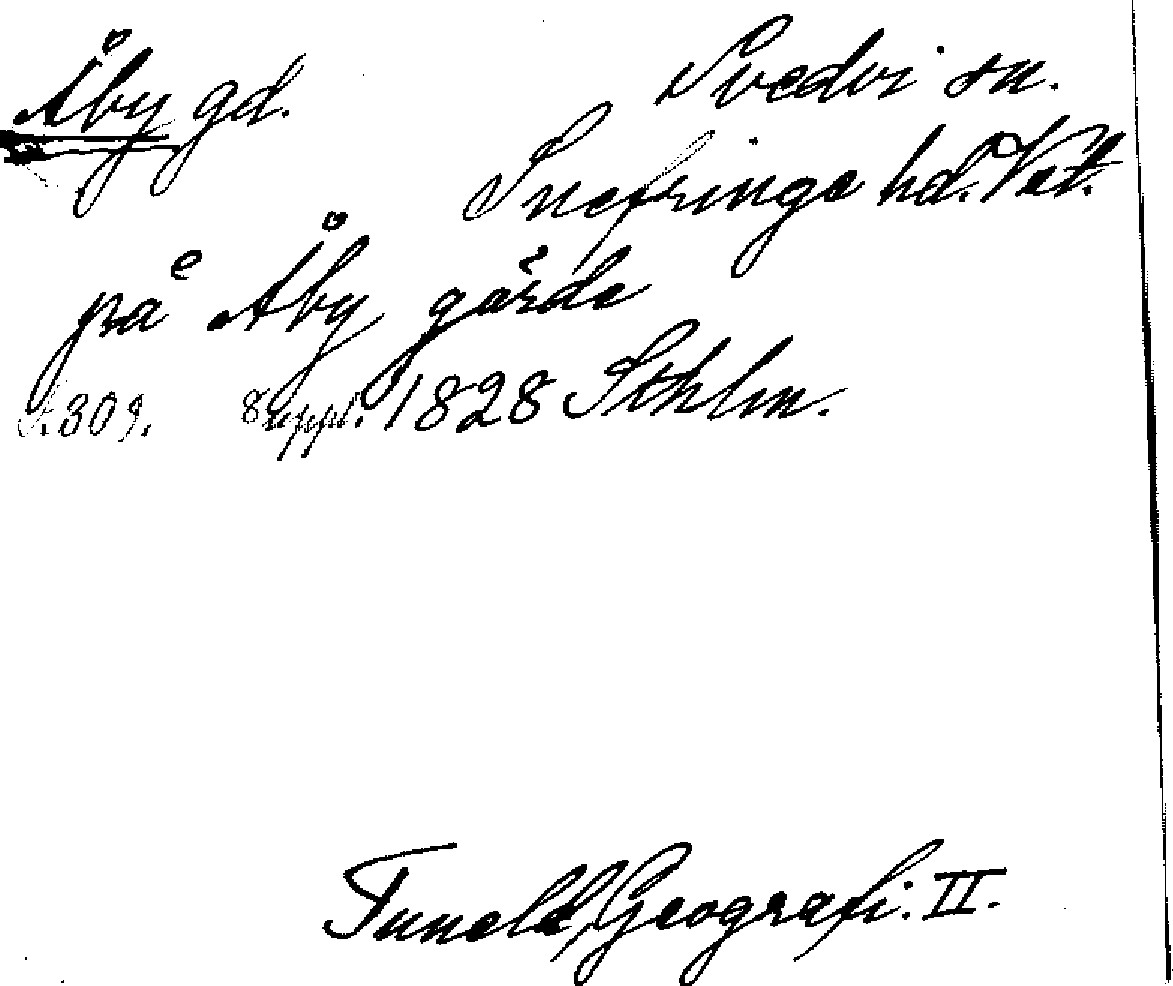 Åby gd. Svedvi sn.
Snefringe hd. Vst.
på Åby gärde
s. 309. 8 uppl. 1828 Sthlm.
Tuneld, Geografi. II.